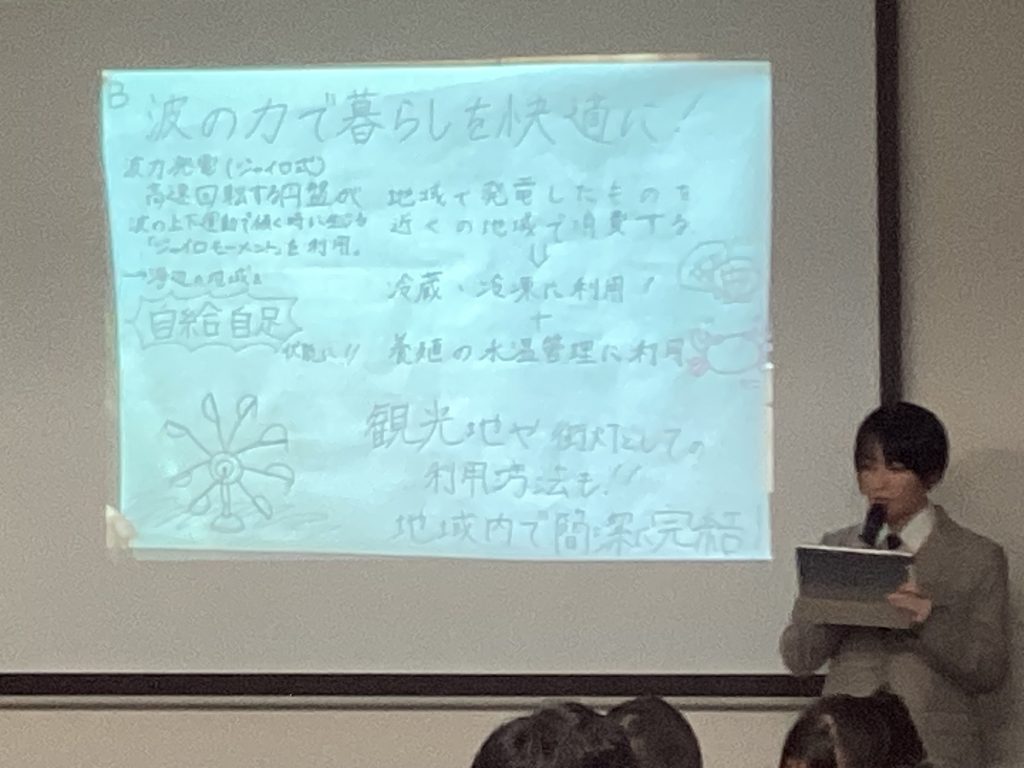 B
波の力で暮らしを快適に!
波力発電(ジャイロ式)
高速回転する円盤が
波の上下運動で傾く時に生じる
「ジャイロモーメント」を利用。
→海辺の地域を
自給自足
可能に!!
地域で発電したものを
近くの地域で消費する
⇓
冷蔵・冷凍に利用!
+
養殖の水温管理に利用
観光地や街灯としての
利用方法も!!
地域内で簡潔に完結